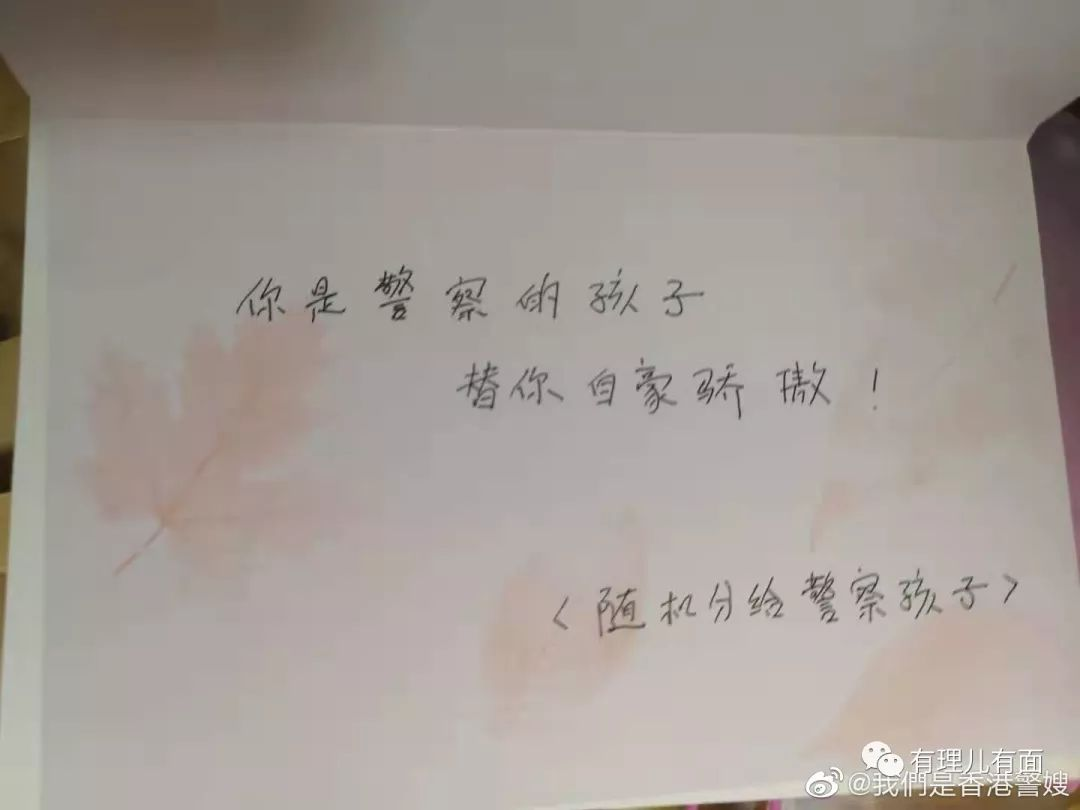 你是警察的孩子
替你自豪骄傲！
<随机分给警察孩子>
有理儿有面
@我們是香港警嫂